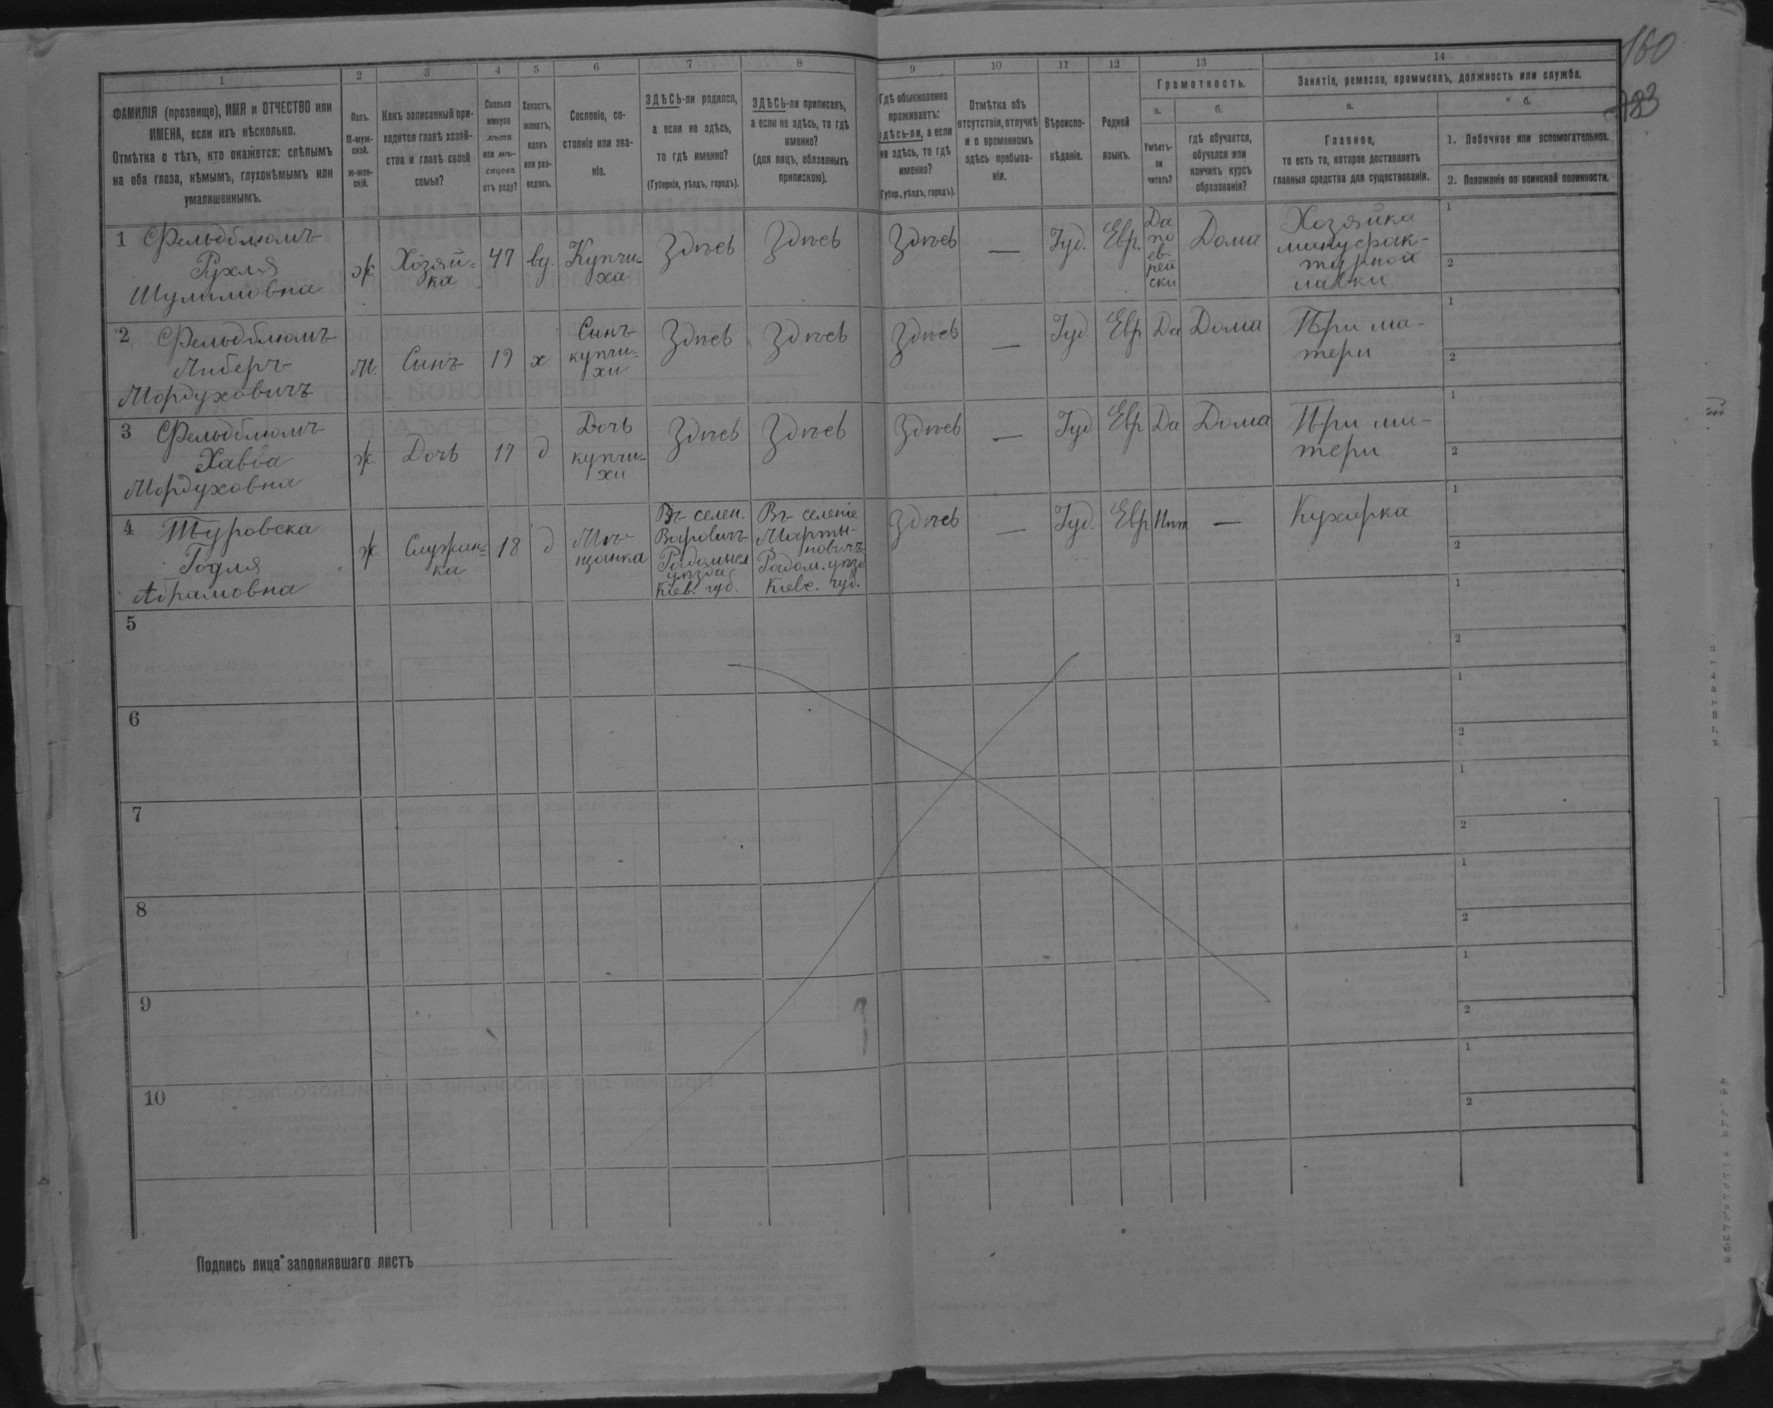 160
183
1
2
3
4
5
6
7
8
9
10
11
12
13
14
ФАМИЛІЯ (прозвище), ИМЯ и ОТЧЕСТВО или
ИМЕНА, если ихъ нѣсколько.
Отмѣтка о тѣхъ, кто окажется: слѣпымъ
на оба глаза, нѣмымъ, глухонѣмымъ или
умалишеннымъ.
Полъ.
М-муж-
ской.
Ж-жен-
скій.
Какъ записанный при-
ходится главѣ хозяй-
ства и главѣ своей
семьи?
Сколько
минуло
лѣтъ
или мѣ-
сяцевъ
отъ роду?
Холостъ,
женатъ,
вдовъ
или раз-
веденъ.
Сословіе, со-
стояніе или зва-
ніе.
ЗДѢСЬ-ли родился,
а если не здѣсь,
то гдѣ именно?
(Губернія, уѣздъ, городъ).
ЗДѢСЬ-ли приписанъ,
а если не здѣсь, то гдѣ
именно?
(для лицъ, обязанныхъ
припискою).
Гдѣ обыкновенно
проживаетъ:
здѣсь-ли, а если
не здѣсь, то гдѣ
именно?
(Губер., уѣздъ, городъ).
Отмѣтка объ
отсутствіи, отлучкѣ
и о временномъ
здѣсь пребыва-
ніи.
Вѣроиспо-
вѣданіе.
Родной
языкъ.
Грамотность.
а.
Умѣетъ-
ли
читать?
б.
гдѣ обучается,
обучался или
кончилъ курсъ
образованія?
Занятіе, ремесло, промыселъ, должность или служба.
а.
Главное,
то есть то, которое доставляетъ
главныя средства для существованія.
б.
1. Побочное или вспомогательное.
2. Положеніе по воинской повинности.
1 Фельдблюмъ
Рухля
Шулимовна
ж
Хозяй-
ка
47
вд.
Купчи-
ха
Здѣсь
Здѣсь
Здѣсь
—
Іуд.
Евр.
Да
по
ев-
рей
ски
Дома
Хозяйка
мануфак-
турной
лавки
1
2
2 Фельдблюмъ
Либеръ
Мордуховичъ
М.
Сынъ
19
х
Сынъ
купчи-
хи
Здѣсь
Здѣсь
Здѣсь
—
Іуд
Евр
Да
Дома
При ма-
тери
1
2
3 Фельдблюмъ
Хавва
Мордуховна
ж
Дочь
17
д
Дочь
купчи-
хи
Здѣсь
Здѣсь
Здѣсь
—
Іуд
Евр
Да
Дома
При ма-
тери
1
2
4 Туровска
Годля
Абрамовна
ж
Служан-
ка
18
д
Мѣ-
щанка
Въ селен.
Варовичъ
Радомысл
уѣзда
Кіев. губ.
Въ селеніе
Марты-
новичъ
Радом. уѣзд
Кіевс. губ.
Здѣсь
—
Іуд.
Евр
Нѣт
—
Кухарка
1
2
5
1
2
6
1
2
7
1
2
8
1
2
9
1
2
10
1
2
Подпись лица заполнявшаго листъ